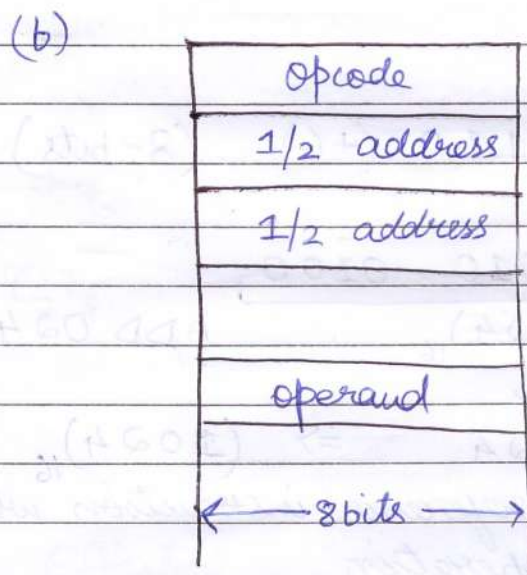 (b)
opcode
1/2 address
1/2 address
operand
8 bits